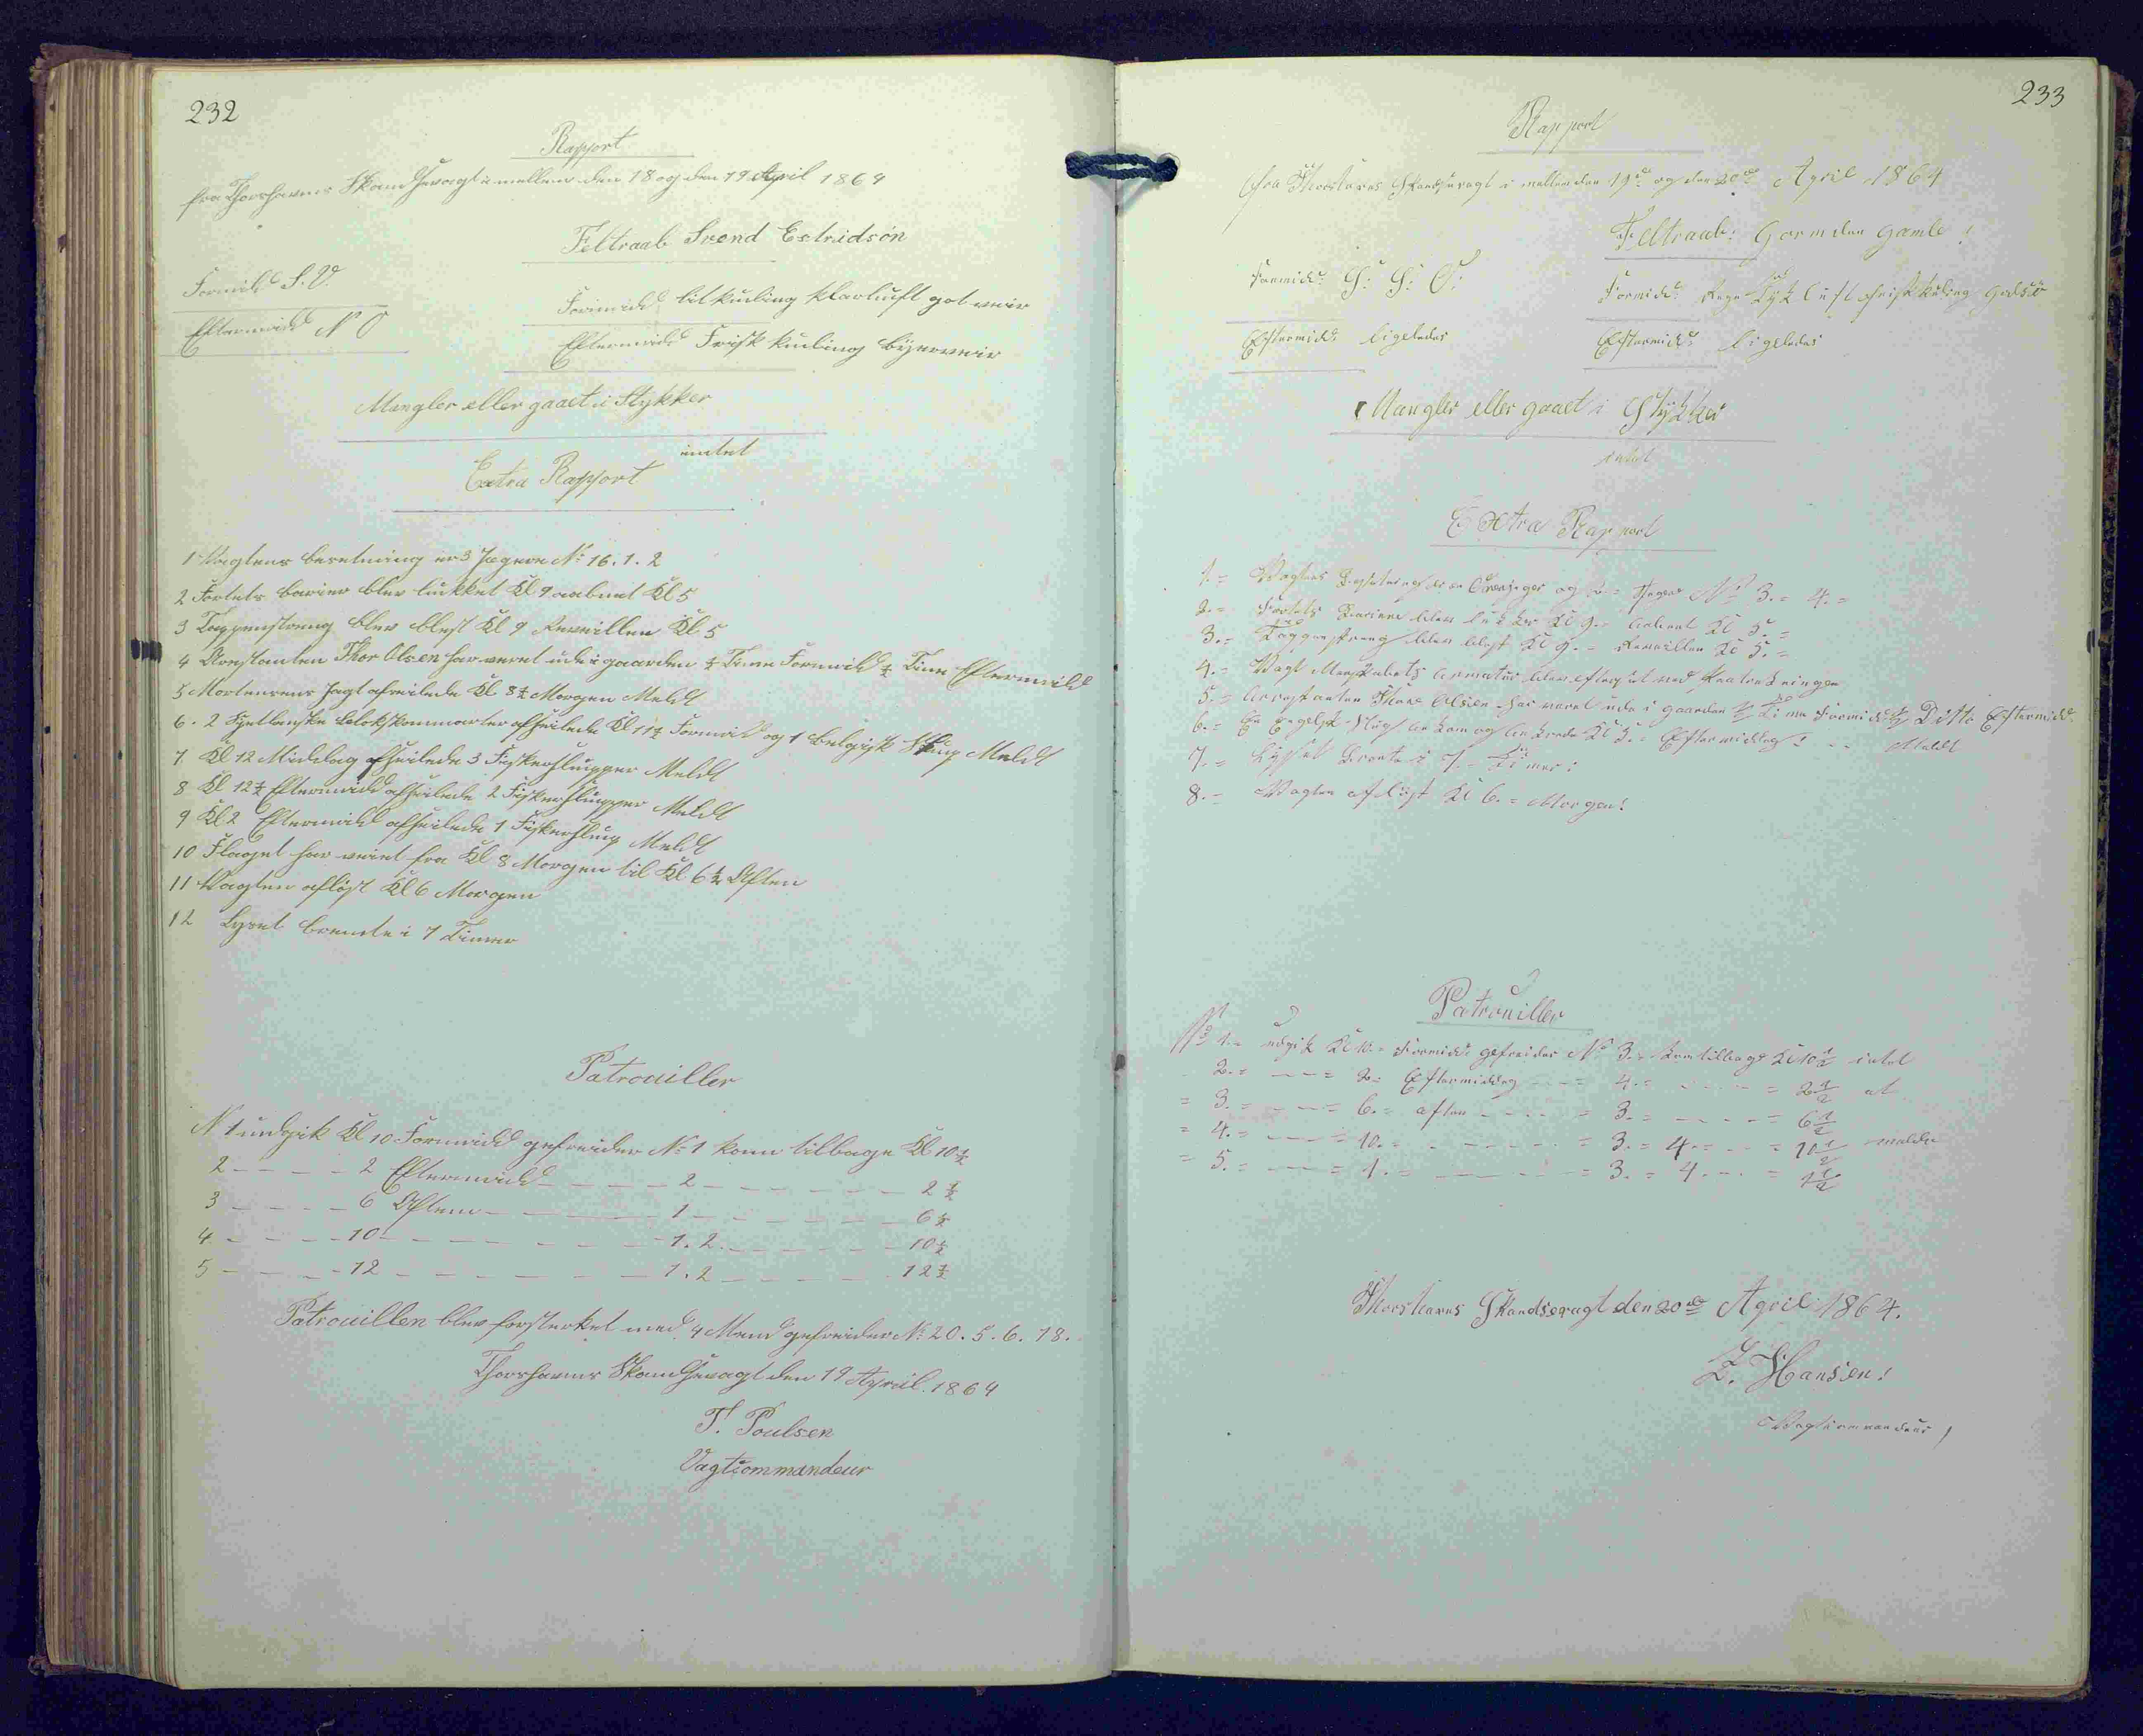 232
Rapport
fra Thorshavns Skandsevagt imellem den 18 og den 19 April 1864
Feltraab Svend Estridsön
Formidd S. V.
Formidd lit kuling klarluft got veir
Eftermidd N O
Eftermidd Frisk kuling Bÿerveir
Mangler eller gaaet i Stÿkker
intet
Extra Rapport
1 Vagtens besetning er 3 Jegere No 16. 1. 2
2 Fortets barier blev lukket Kl 9 aabnet Kl 5
3 Tappenstreng blev blest Kl 9 Reveillen Kl 5
4 Arrestanten Thor Olsen har veret ude i gaarden ½ Time Formidd ½ Time Eftermidd
5 Mortensens Jagt afseilede Kl 8½ Morgen Meldt
6. 2 Hjetlenske afseilede Kl 11½ Formidd og 1 belgisk Slup Meldt
7 Kl 12 Middag afseilede 3 Fiskerslupper Meldt
8 Kl 12½ Eftermidd afseilede 2 Fiskerslupper Meldt
9 Kl 2 Eftermidd afseilede 1 Fiskerslup Meldt
10 Flaget har veiet fra Kl 8 Morgen til Kl 6½ Aften
11 Vagten afløst Kl 6 Morgen
12 Lyset brendte i 7 Timer
Patrouiller
N 1 undgik Kl 10 Formidd gefreider No 1 kom tilbage Kl 10½
2 — — — — 2 Eftermidd — — — — 2 — — — — — — 2½
3 — — — — 6 Aften — — — — 1 — — — — — — 6½
4 — — — — 10 — — — — — — — 1. 2 — — — — — 10½
5 — — — — 12 — — — — — — — 1. 2 — — — — — 12½
Patrouillen blev forsterket med 4 Mend gefreider No 20. 5. 6. 18.
Thorshavns Skandsevagt den 19 April. 1864
T. Poulsen
Vagtcommandeur
233
Rapport
fra Thorshavns Skandsevagt i mellem den 19de og den 20de April 1864
Feltraab: Gorm den Gamle!
Formidd: S: S: O:
Formidd: Regn Tÿk luft frisk kuling
Eftermidd: ligeledes
Eftermidd: ligeledes
Mangler eller gaaet i Stÿkker
intet
Extra Rapport
1. = Vagtens Besetning er en Overjeger og 2. = Jegere No 3. = 4. =
2. = Fortets Bariere blev lukket Kl 9. = Aabent Kl 5. =
3. = Tappenstreng blev blest Kl 9. = Reveillen Kl 5. =
4. = Vagt Mandskabets Armatur blev efterset ved
5. = Arrestanten Thor Olsen har veret ude i gaarden ½ Time Formidd: ½ Ditto Eftermidd:
6. = En Engelsk Slup ankom og ankrede Kl 5 = Eftermiddag: — Meldt
7. = Lÿset Brente i 7. = Timer:
8. = Vagten aflöst Kl 6. = Morgen!
Patrouiller
No 1. = udgik Kl 10. = Formidd: gefreider No 3. = kom tilbage Kl 10½ intet
2. = — — = 2 = Eftermiddag — — = 4. = — — — = 2½ at
= 3. = — — = 6. = aften — — — = 3. = — — — = 6½
= 4. = — — = 10. = — — — — = 3. = 4. = — = 10½ melde
= 5. = — — = 1. = — — — — = 3. = 4. — — = 1½
Thorshavns Skandsevagt den 20de April 1864.
Z. Hansen!
Vagtcommandeur